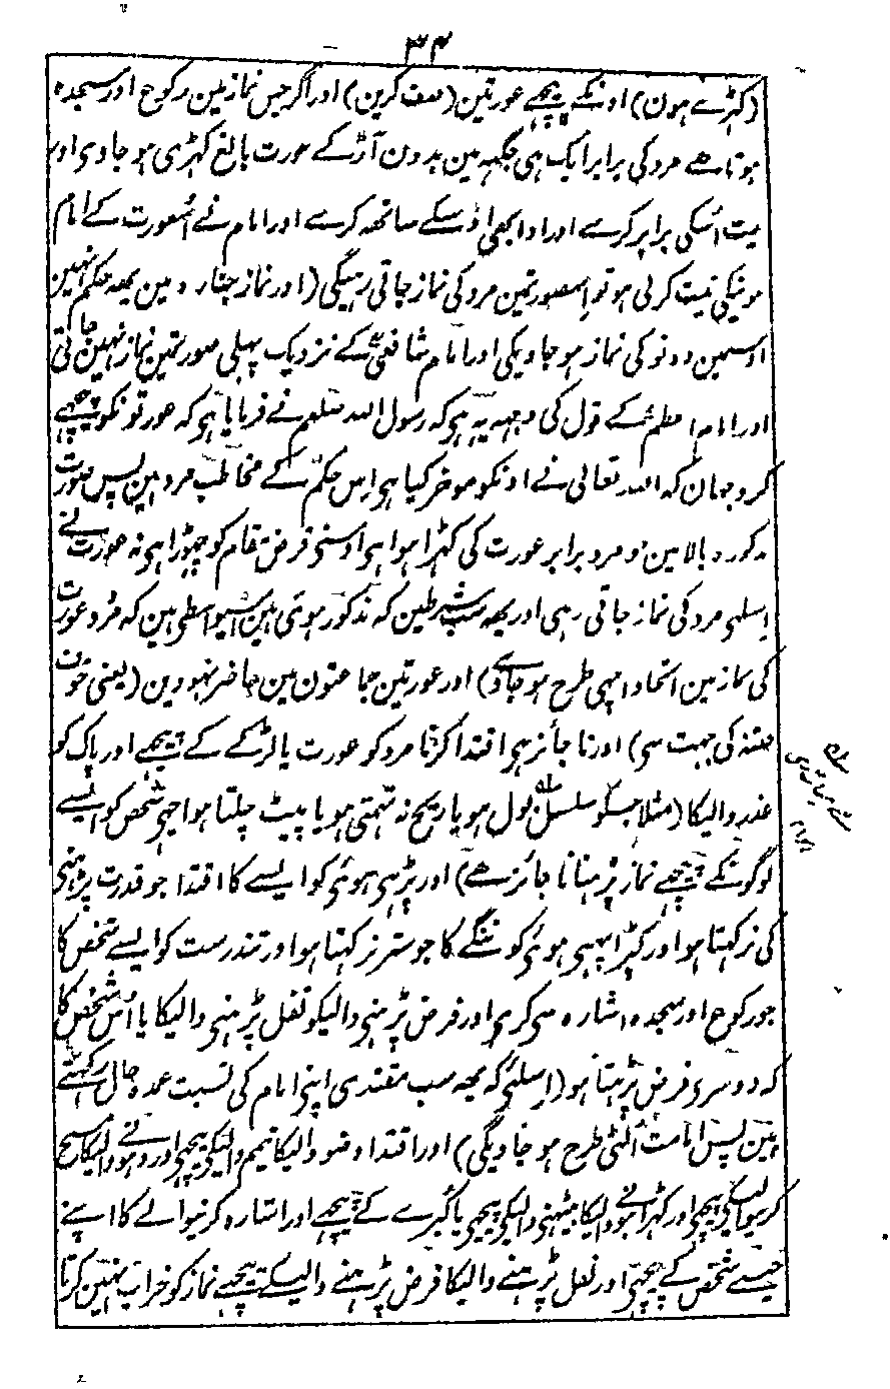 ۳۴
(کہڑے ہون) اونکے پیچھے عورتین (صف کرین) اور اگر جس نماز مین رکوع اور سجدہ
ہوتا ہے مرد کی برابر ایک ہی جگہہ مین بدون آڑ کے عورت بالغ کہڑی ہو جاوی اور
نیت اُسکی برابر کرے اور ادا بھی اُسکے ساتھ کرے اور امام نے اُس عورت کے امام
ہونیکی نیت کرلی ہو تو اِسصورتمین مرد کی نماز جاتی رہیگی (اور نماز جنازہ مین یہہ حکم نہین
اوسمین دونو کی نماز ہو جاویگی اور امام شافعیؒ کے نزدیک پہلی صورتمین نماز نہین جاتی
اور امام اعظمؒ کے قول کی وجہہ یہ ہی کہ رسول اللہ صلعم نے فرمایا ہی کہ عورتونکو پیچھے
کرو جہان کہ اللہ تعالی نے اونکو موخر کیا ہی اِس حکم کے مخاطب مرد ہین پس صورت
مذکورہ بالا مین جو مرد برابر عورت کی کہڑا ہوا ہی اوسنی فرض مقام کو چہوڑا ہی نہ عورت نے
اِسلیٔ مرد کی نماز جاتی رہی اور یہہ سب شرطین کہ مذکور ہوئی ہین اسیواسطی ہین کہ مرد عورت
کی نماز مین اتحاد اچہی طرح ہو جاوے) اور عورتین جماعتون مین حاضر نہووین (یعنی خوف
فتنہ کی جہت سی) اور ناجائز ہی اقتدا کرنا مرد کو عورت یا لڑکے کے پیچھے اور پاک کو
عذر والیکا (مثلا جسکو سلسل بول ہو یا ریح نہ تہمتی ہو یا پیٹ چلتا ہو اچہی شخص کو ایسے
لوگونکے پیچھے نماز پڑہنا نا جائز ہے) اور پڑہی ہوئی کو ایسے کا اقتدا جو قدرت پڑہنی
کی نرکہتا ہو اور کپڑا پہنی ہوئی کو ننگے کا جو ستر نرکہتا ہو اور تندرست کو ایسے شخص کا
جو رکوع اور سجدہ اشارہ سی کری اور فرض پڑہنی والیکو نفل پڑہنی والیکا یا اُس شخص کا
کہ دوسری فرض پڑہتا ہو (اِسلیٔ کہ یہہ سب مقتدی اپنی امام کی نسبت عمدہ حال رکہتے
ہین پس امامت اُلٹی طرح ہو جاویگی) اور اقتدا وضو والیکا تیمم والیکی پیچھی اور دہونے والیکا مسح
کرنیوالیکی پیچھی اور کہڑے ہونے والیکا بیٹہنی والیکی پیچھی یا کبڑے کے پیچھے اور اشارہ کرنیوالے کا اپنے
جیسے شخص کے پیچھی اور نفل پڑہنے والیکا فرض پڑہنے والیکے پیچھے نماز کو خراب نہین کرتا